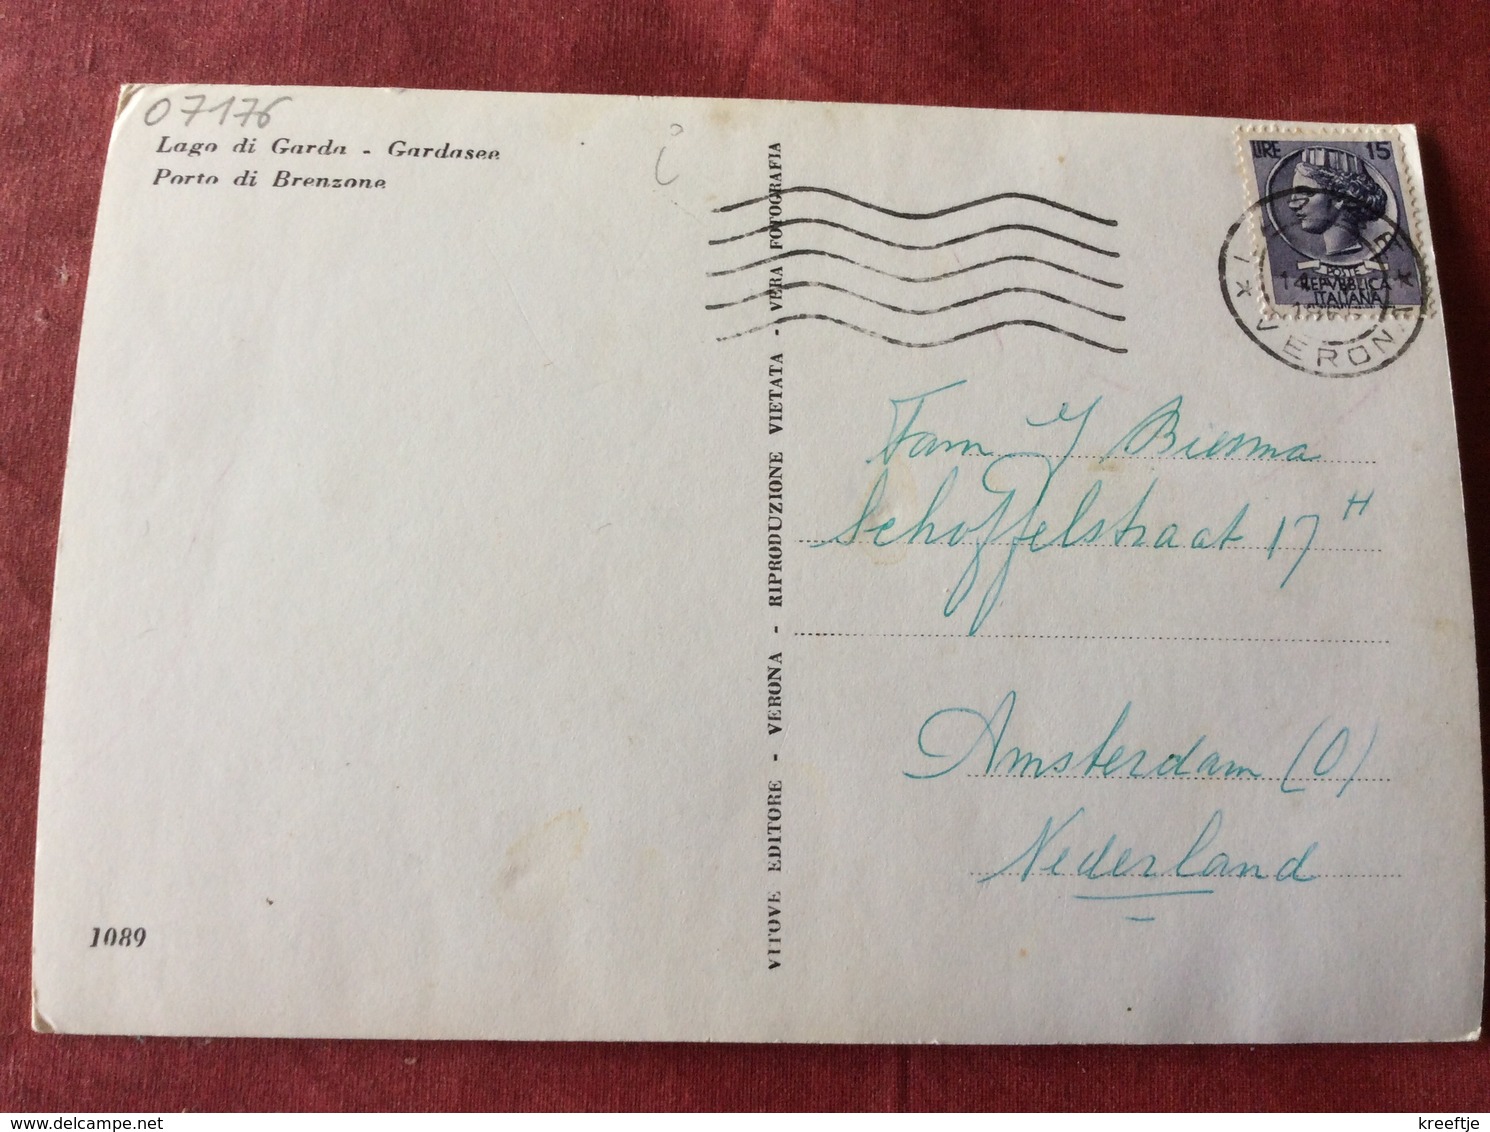 07176
Lago di Garda - Gardasee
Porto di Brenzone
VITOVE EDITORE - VERONA - RIPRODUZIONE VIETATA - VERA FOTOGRAFIA
LIRE 15
POSTE
REPVBBLICA
ITALIANA
VERONA
Fam J Biesma
Schoffelstraat 17 H
Amsterdam (O)
Nederland
1089
kreeftje